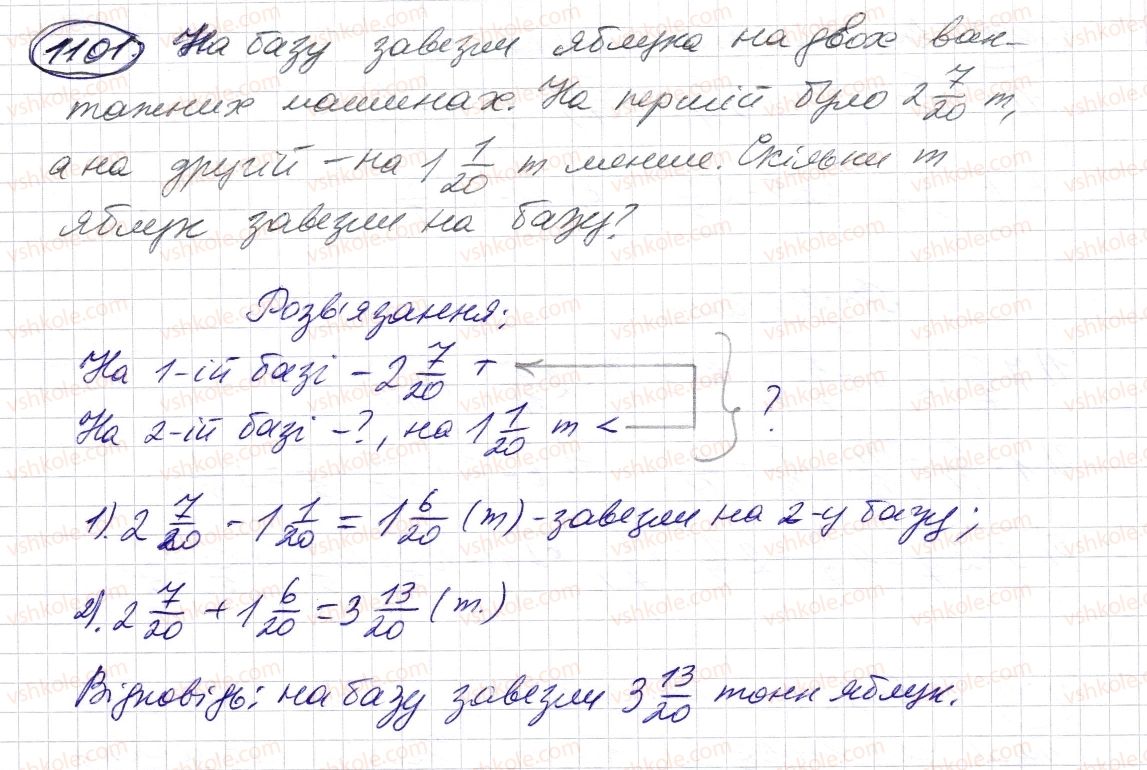 1101. На базу завезли яблука на двох ван-
тажних машинах. На першій було 2 7/20 т,
а на другій – на 1 1/20 т менше. Скільки т
яблук завезли на базу?
Розв'язання:
На 1-ій базі – 2 7/20 т
На 2-ій базі – ?, на 1 1/20 т < } ?
1). 2 7/20 - 1 1/20 = 1 6/20 (т) - завезли на 2-у базу;
2). 2 7/20 + 1 6/20 = 3 13/20 (т.)
Відповідь: на базу завезли 3 13/20 тонн яблук.